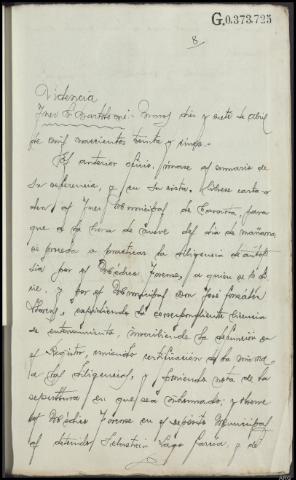 G.0.373.725
8
Providencia
Juez Sr Bartolomé. Muros diez y siete de Abril
de mil novecientos treinta y cinco.
El anterior oficio, únase al sumario de
su referencia, y en su vista, líbrese carta
orden al Juez Municipal de Carnota, para
que a la hora de nueve del día de mañana
se proceda a practicar la diligencia de autop
sia por el Médico forense, a quien se le
y por el Municipal don José González
expidiendo la correspondiente licencia
de enterramiento, inscribiendo la defunción en
el Registro, uniendo certificación de la misma
a tal diligencia, y tomando nota de la
sepultura en que sea inhumado; y
el Médico Forense en el Depósito Municipal
al detenido Sebastián Lago García, y de